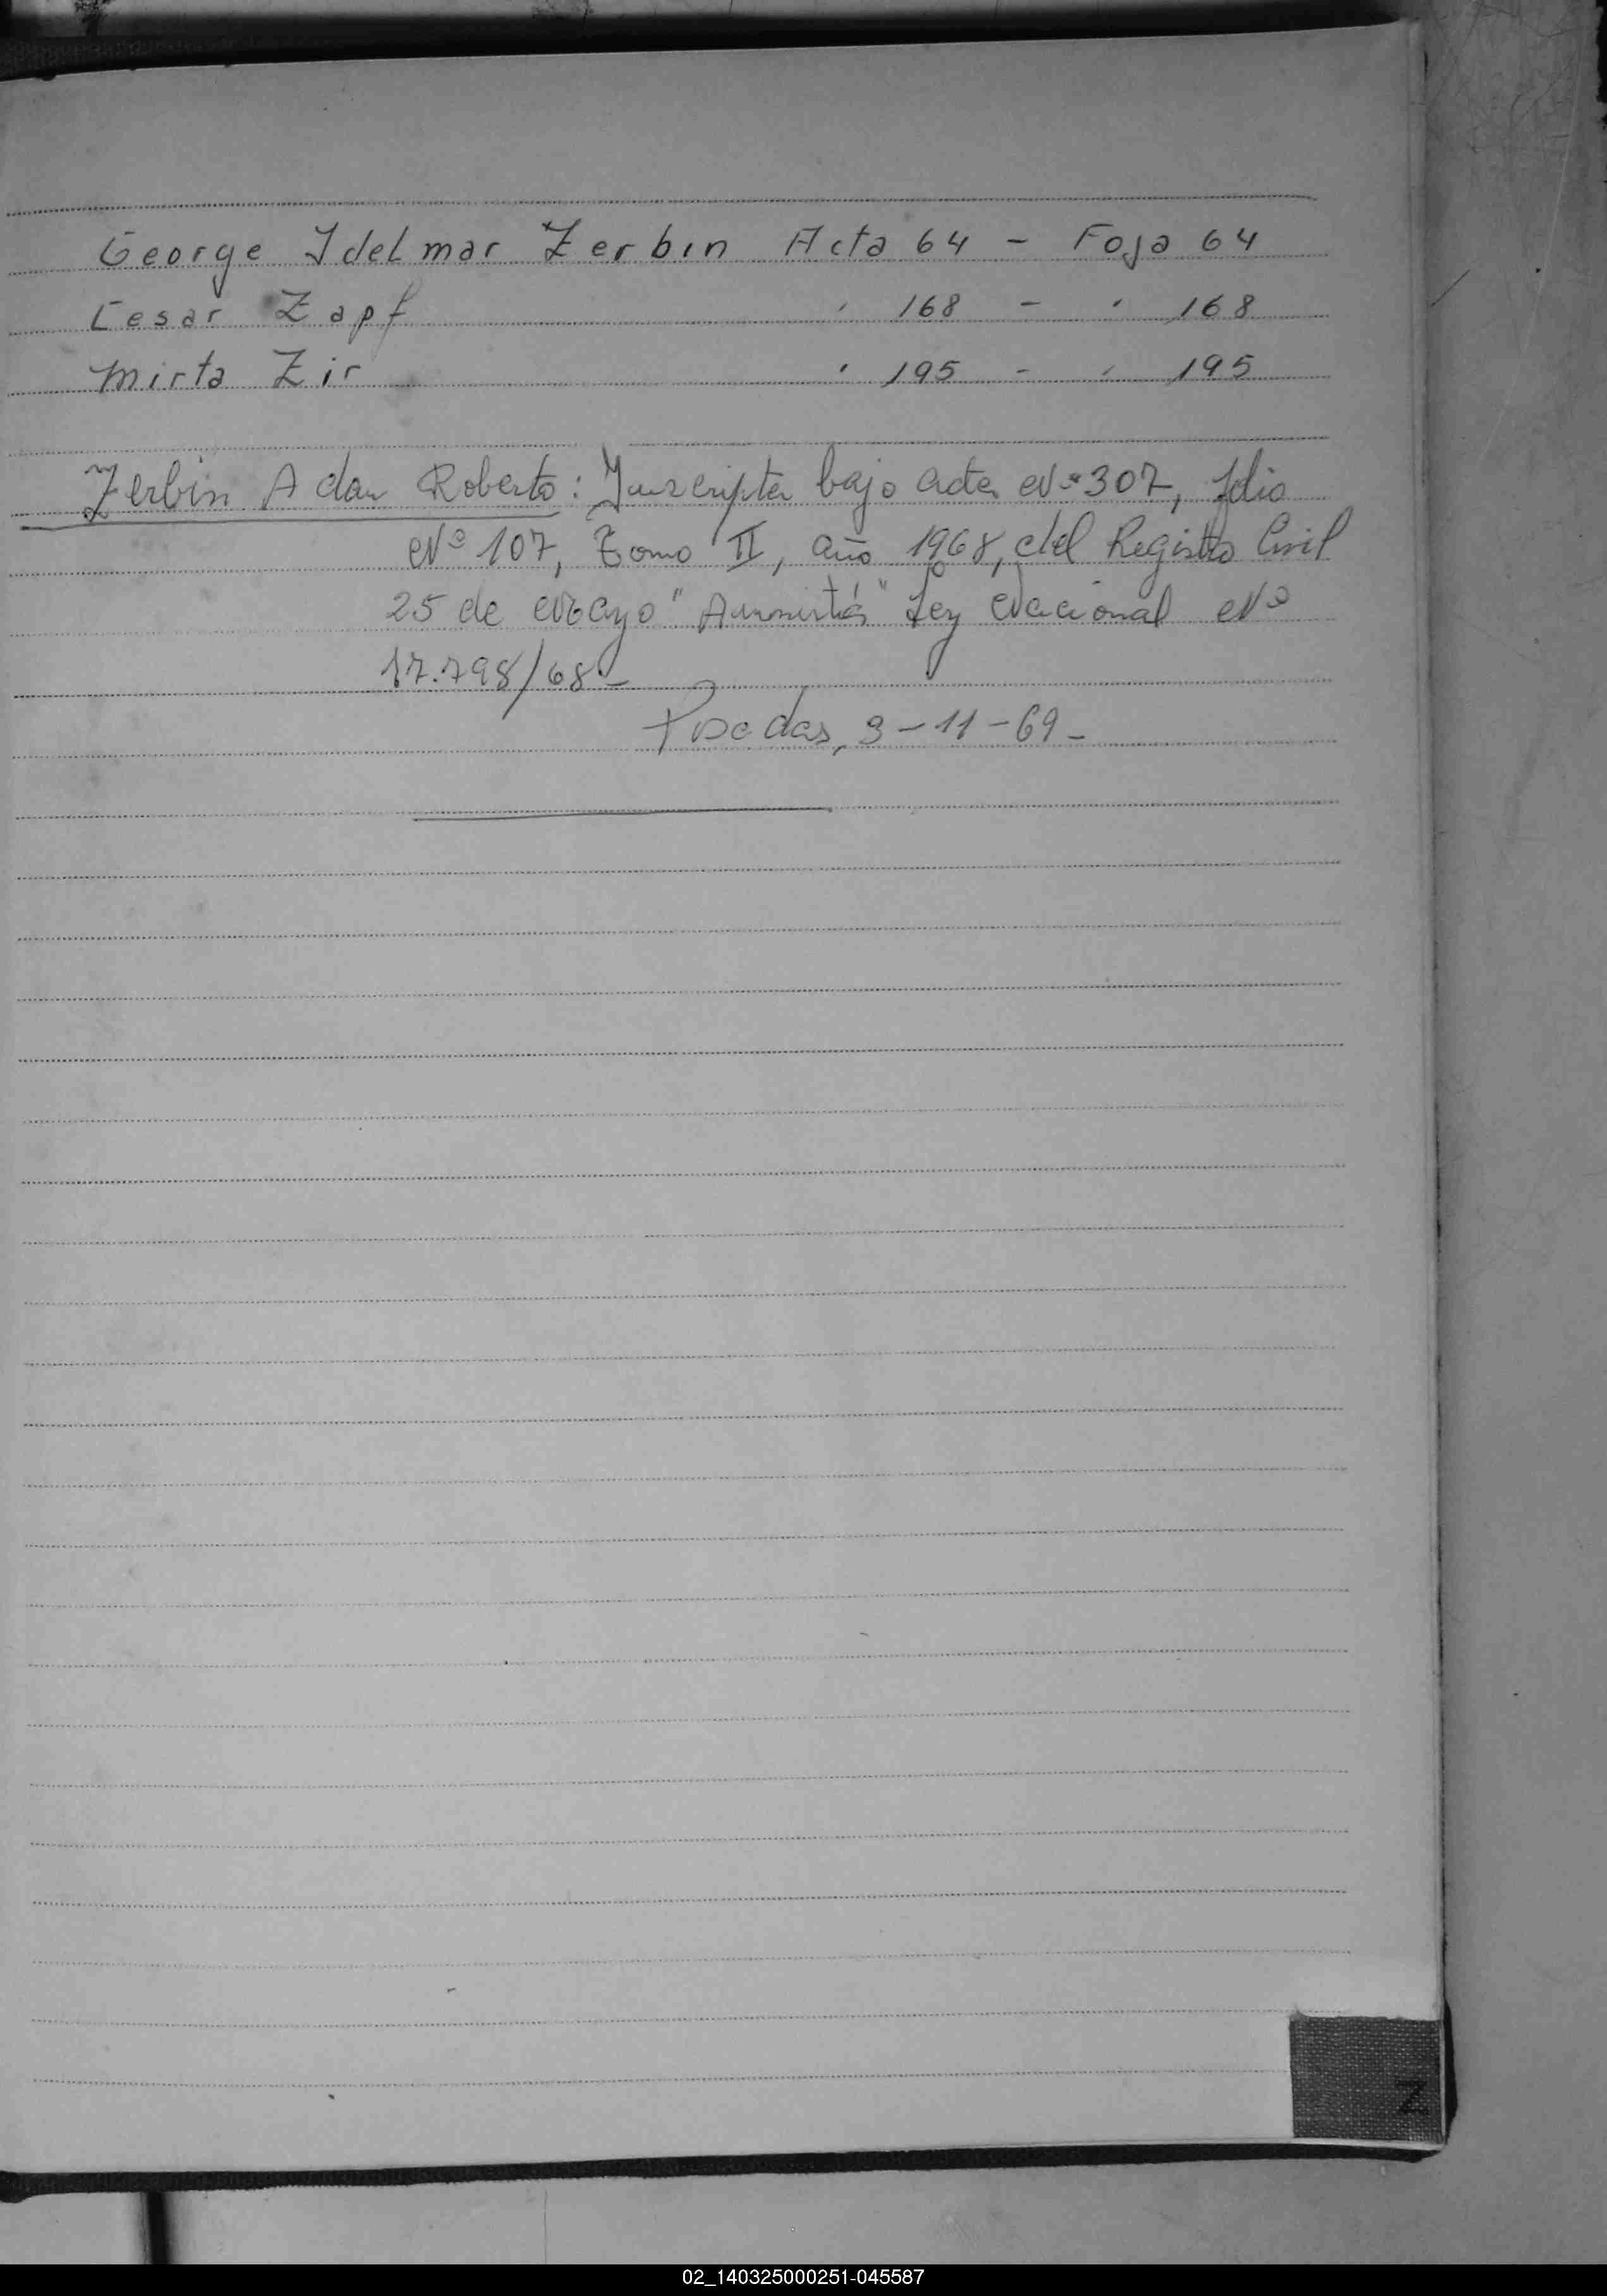 George Idelmar Zerbin Acta 64 - Foja 64
Cesar Zapf " 168 - " 168
Mirta Zir " 195 - " 195
Zerbin Adan Roberto: Inscripta bajo acta Nº 307, folio
Nº 107, Tomo II, año 1968, del Registro Civil
25 de Mayo "Amnistía" Ley Nacional Nº
17.798/68-
Posadas, 3-11-69-
Z
02_140325000251-045587